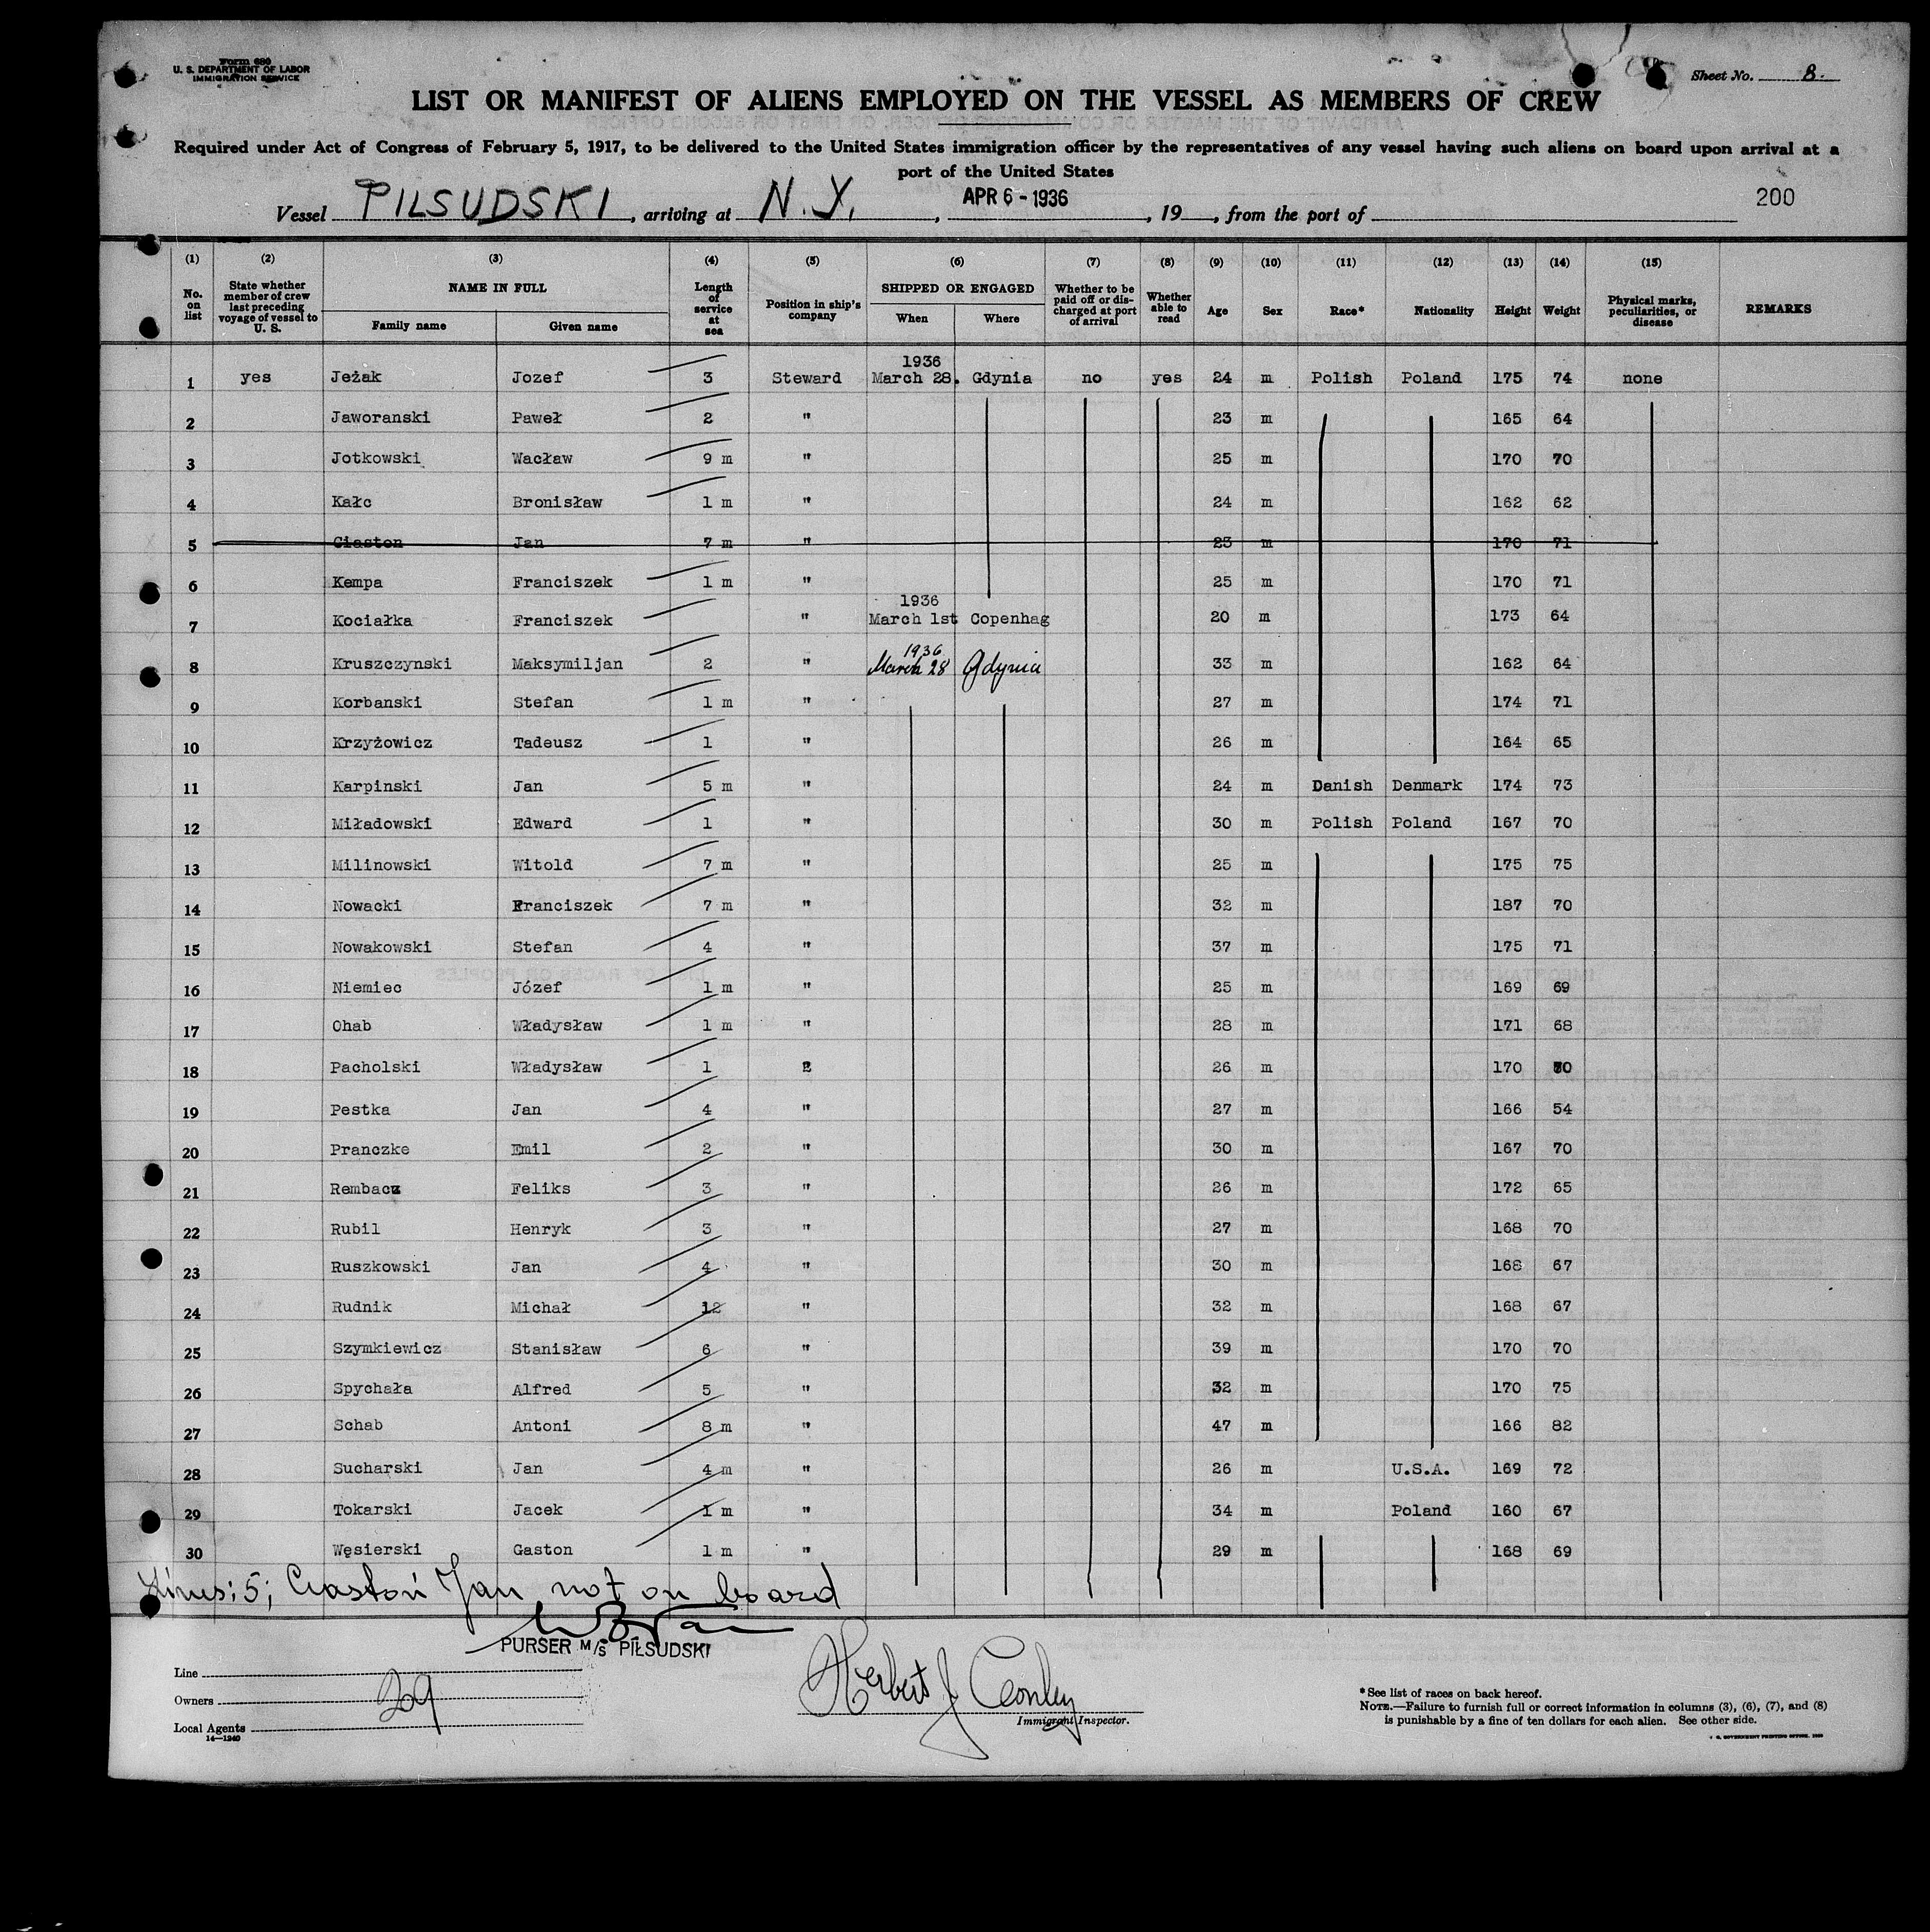 Form 680
U. S. DEPARTMENT OF LABOR
IMMIGRATION SERVICE
Sheet No. 8.
LIST OR MANIFEST OF ALIENS EMPLOYED ON THE VESSEL AS MEMBERS OF CREW
Required under Act of Congress of February 5, 1917, to be delivered to the United States immigration officer by the representatives of any vessel having such aliens on board upon arrival at a
port of the United States
Vessel PILSUDSKI, arriving at N.Y., APR 6 - 1936, 19, from the port of 200
(1) (2) (3) (4) (5) (6) (7) (8) (9) (10) (11) (12) (13) (14) (15)
No. on list State whether member of crew last preceding voyage of vessel to U. S. NAME IN FULL Family name Given name Length of service at sea Position in ship's company SHIPPED OR ENGAGED When Where Whether to be paid off or discharged at port of arrival Whether able to read Age Sex Race* Nationality Height Weight Physical marks, peculiarities, or disease REMARKS
1936
1 yes Jeżak Jozef 3 Steward March 28. Gdynia no yes 24 m Polish Poland 175 74 none
2 Jaworanski Paweł 2 " 23 m 165 64
3 Jotkowski Wacław 9 m " 25 m 170 70
4 Kałc Bronisław 1 m " 24 m 162 62
5 Ciaston Jan 7 m " 23 m 170 71
6 Kempa Franciszek 1 m " 25 m 170 71
1936
7 Kociałka Franciszek " March 1st Copenhag 20 m 173 64
1936
8 Kruszczynski Maksymiljan 2 " March 28 Gdynia 33 m 162 64
9 Korbanski Stefan 1 m " 27 m 174 71
10 Krzyżowicz Tadeusz 1 " 26 m 164 65
11 Karpinski Jan 5 m " 24 m Danish Denmark 174 73
12 Miładowski Edward 1 " 30 m Polish Poland 167 70
13 Milinowski Witold 7 m " 25 m 175 75
14 Nowacki Franciszek 7 m " 32 m 187 70
15 Nowakowski Stefan 4 " 37 m 175 71
16 Niemiec Józef 1 m " 25 m 169 69
17 Ohab Władysław 1 m " 28 m 171 68
18 Pacholski Władysław 1 26 m 170 70
19 Pestka Jan 4 " 27 m 166 54
20 Pranczke Emil 2 " 30 m 167 70
21 Rembacz Feliks 3 " 26 m 172 65
22 Rubil Henryk 3 " 27 m 168 70
23 Ruszkowski Jan 4 " 30 m 168 67
24 Rudnik Michał 12 " 32 m 168 67
25 Szymkiewicz Stanisław 6 " 39 m 170 70
26 Spychała Alfred 5 " 32 m 170 75
27 Schab Antoni 8 m " 47 m 166 82
28 Sucharski Jan 4 m " 26 m U.S.A. 169 72
29 Tokarski Jacek 1 m " 34 m Poland 160 67
30 Węsierski Gaston 1 m " 29 m 168 69
Lines: 5; Ciastoń Jan not on board
PURSER M/S PIŁSUDSKI
Line
Owners 29
Local Agents
14—1240
Herbert J Conley
Immigrant Inspector.
*See list of races on back hereof.
NOTE.—Failure to furnish full or correct information in columns (3), (6), (7), and (8)
is punishable by a fine of ten dollars for each alien. See other side.